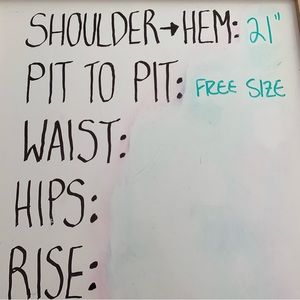 SHOULDER→HEM: 21"
PIT TO PIT: FREE SIZE
WAIST:
HIPS:
RISE: